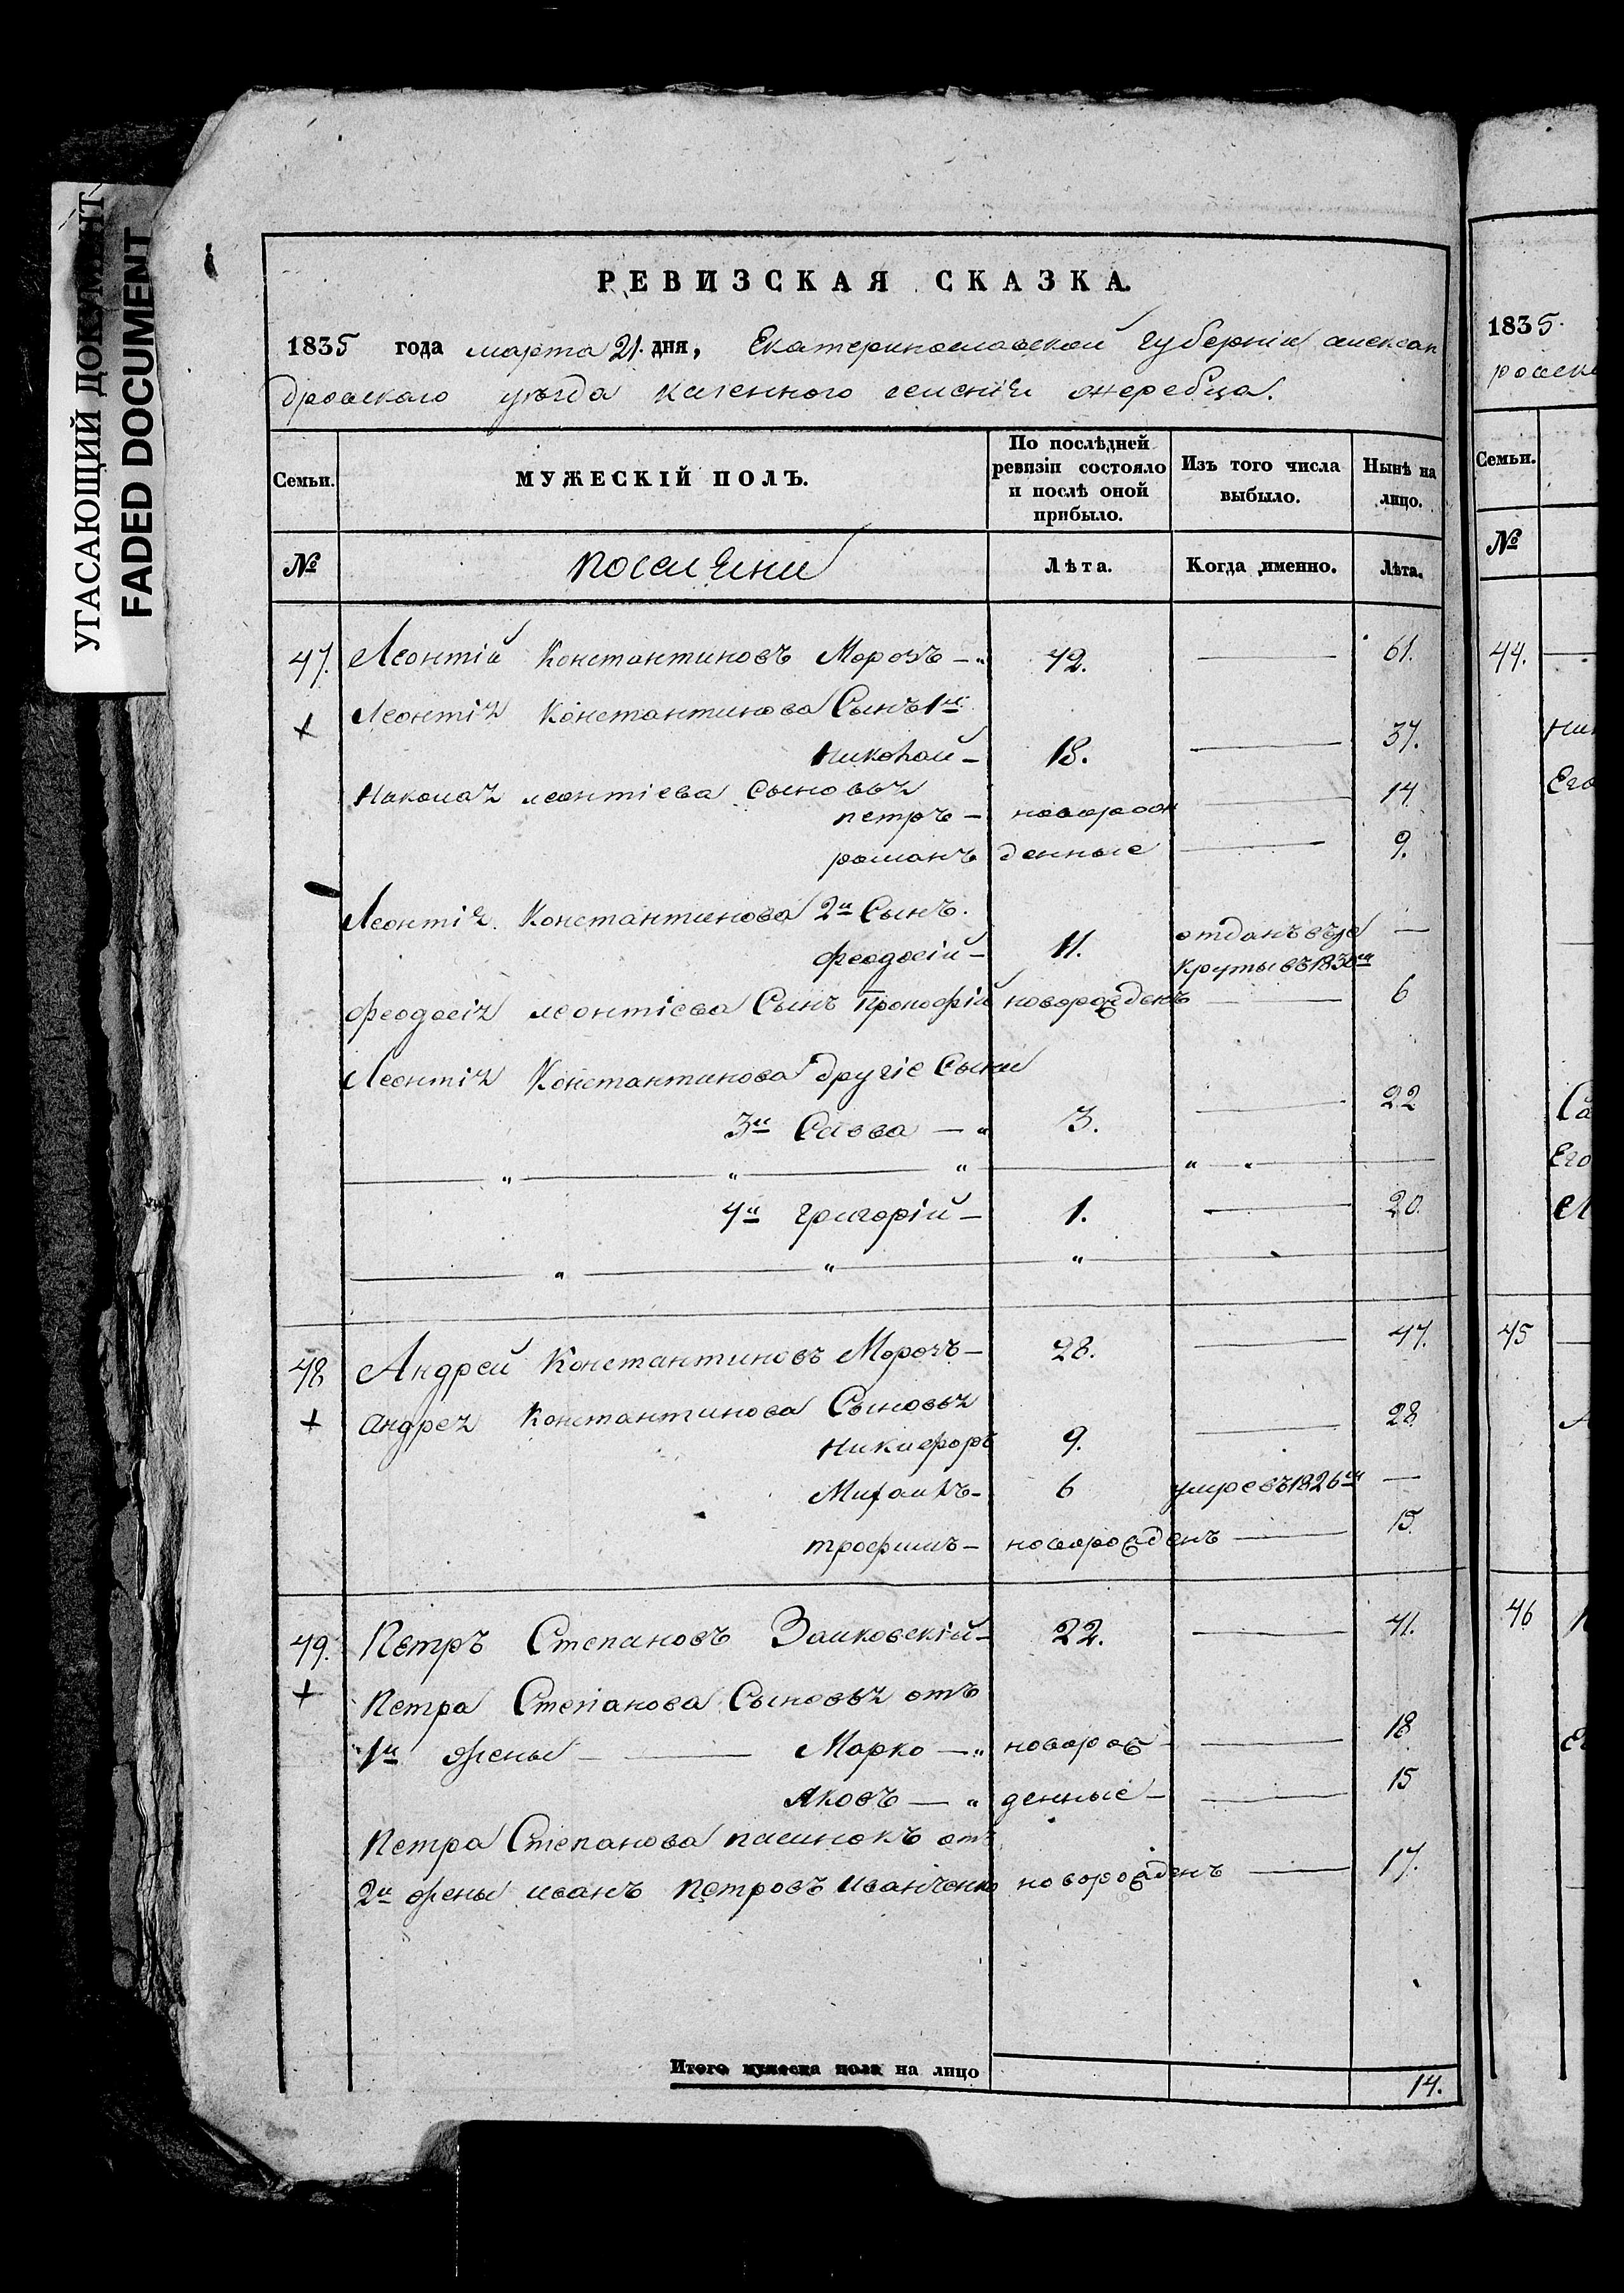 УГАСАЮЩИЙ ДОКУМЕНТ
FADED DOCUMENT
РЕВИЗСКАЯ СКАЗКА.
1835 года марта 21. дня, Екатеринославской губерніи александ
дровскаго уѣзда казенного селенія жеребца.
Семьи. МУЖЕСКІЙ ПОЛЪ. По послѣдней ревизіи состояло и послѣ оной прибыло. Изъ того числа выбыло. Нынѣ на лицо.
№ поселяни Лѣта. Когда именно. Лѣта.
47. Леонтій Константиновъ Морозъ — 42. — 61.
+ Леонтія Константинова Сынъ 1й
Николай — 18. — 37.
Николая леонтіева Сыновья
петръ — новорож — 14
романъ денные — 9.
Леонтія Константинова 2й Сынъ.
феодосій — 11. отданъ въ ре —
круты въ 1830м
феодосія леонтіева Сынъ Прокофій новорожденъ — 6
Леонтія Константинова другіе Сыни
3й Савва — 3. — 22
4й григорій — 1. — 20.
48 Андрей Константиновъ Морозъ — 28. — 47.
+ андрея Константинова Сыновья
Никифоръ 9. — 28
Михаилъ — 6 умре въ 1826м —
трофимъ — новорожденъ — 15.
49. Петръ Степановъ Заиковскій — 22. — 41.
+ Петра Степанова Сыновья отъ
1й жены — Марко — новорож — 18
Яковъ — денные — 15
Петра Степанова пасинокъ отъ
2й жены иванъ Петровъ иванченко новорожденъ — 17.
Итого мужеска пола на лицо 14.
1835.
Семьи.
№
44.
Его
Его
45
46